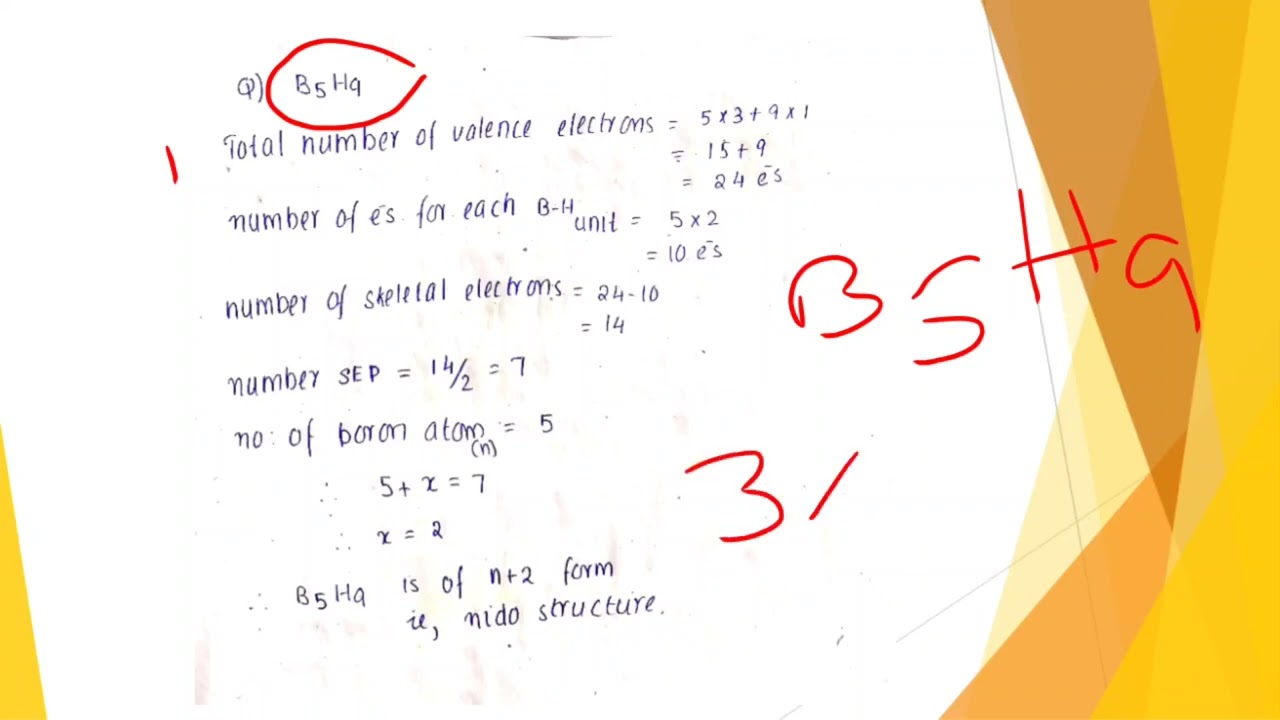 Q) B5H9
Total number of valence electrons = 5 x 3 + 9 x 1
= 15 + 9
= 24 e¯s
number of e¯s. for each B-H unit = 5 x 2
= 10 e¯s
number of skeletal electrons = 24 - 10
= 14
number SEP = 14/2 = 7
no: of boron atom (n) = 5
∴ 5 + x = 7
∴ x = 2
∴ B5H9 is of n+2 form
ie, nido structure.
1
B5H9
3